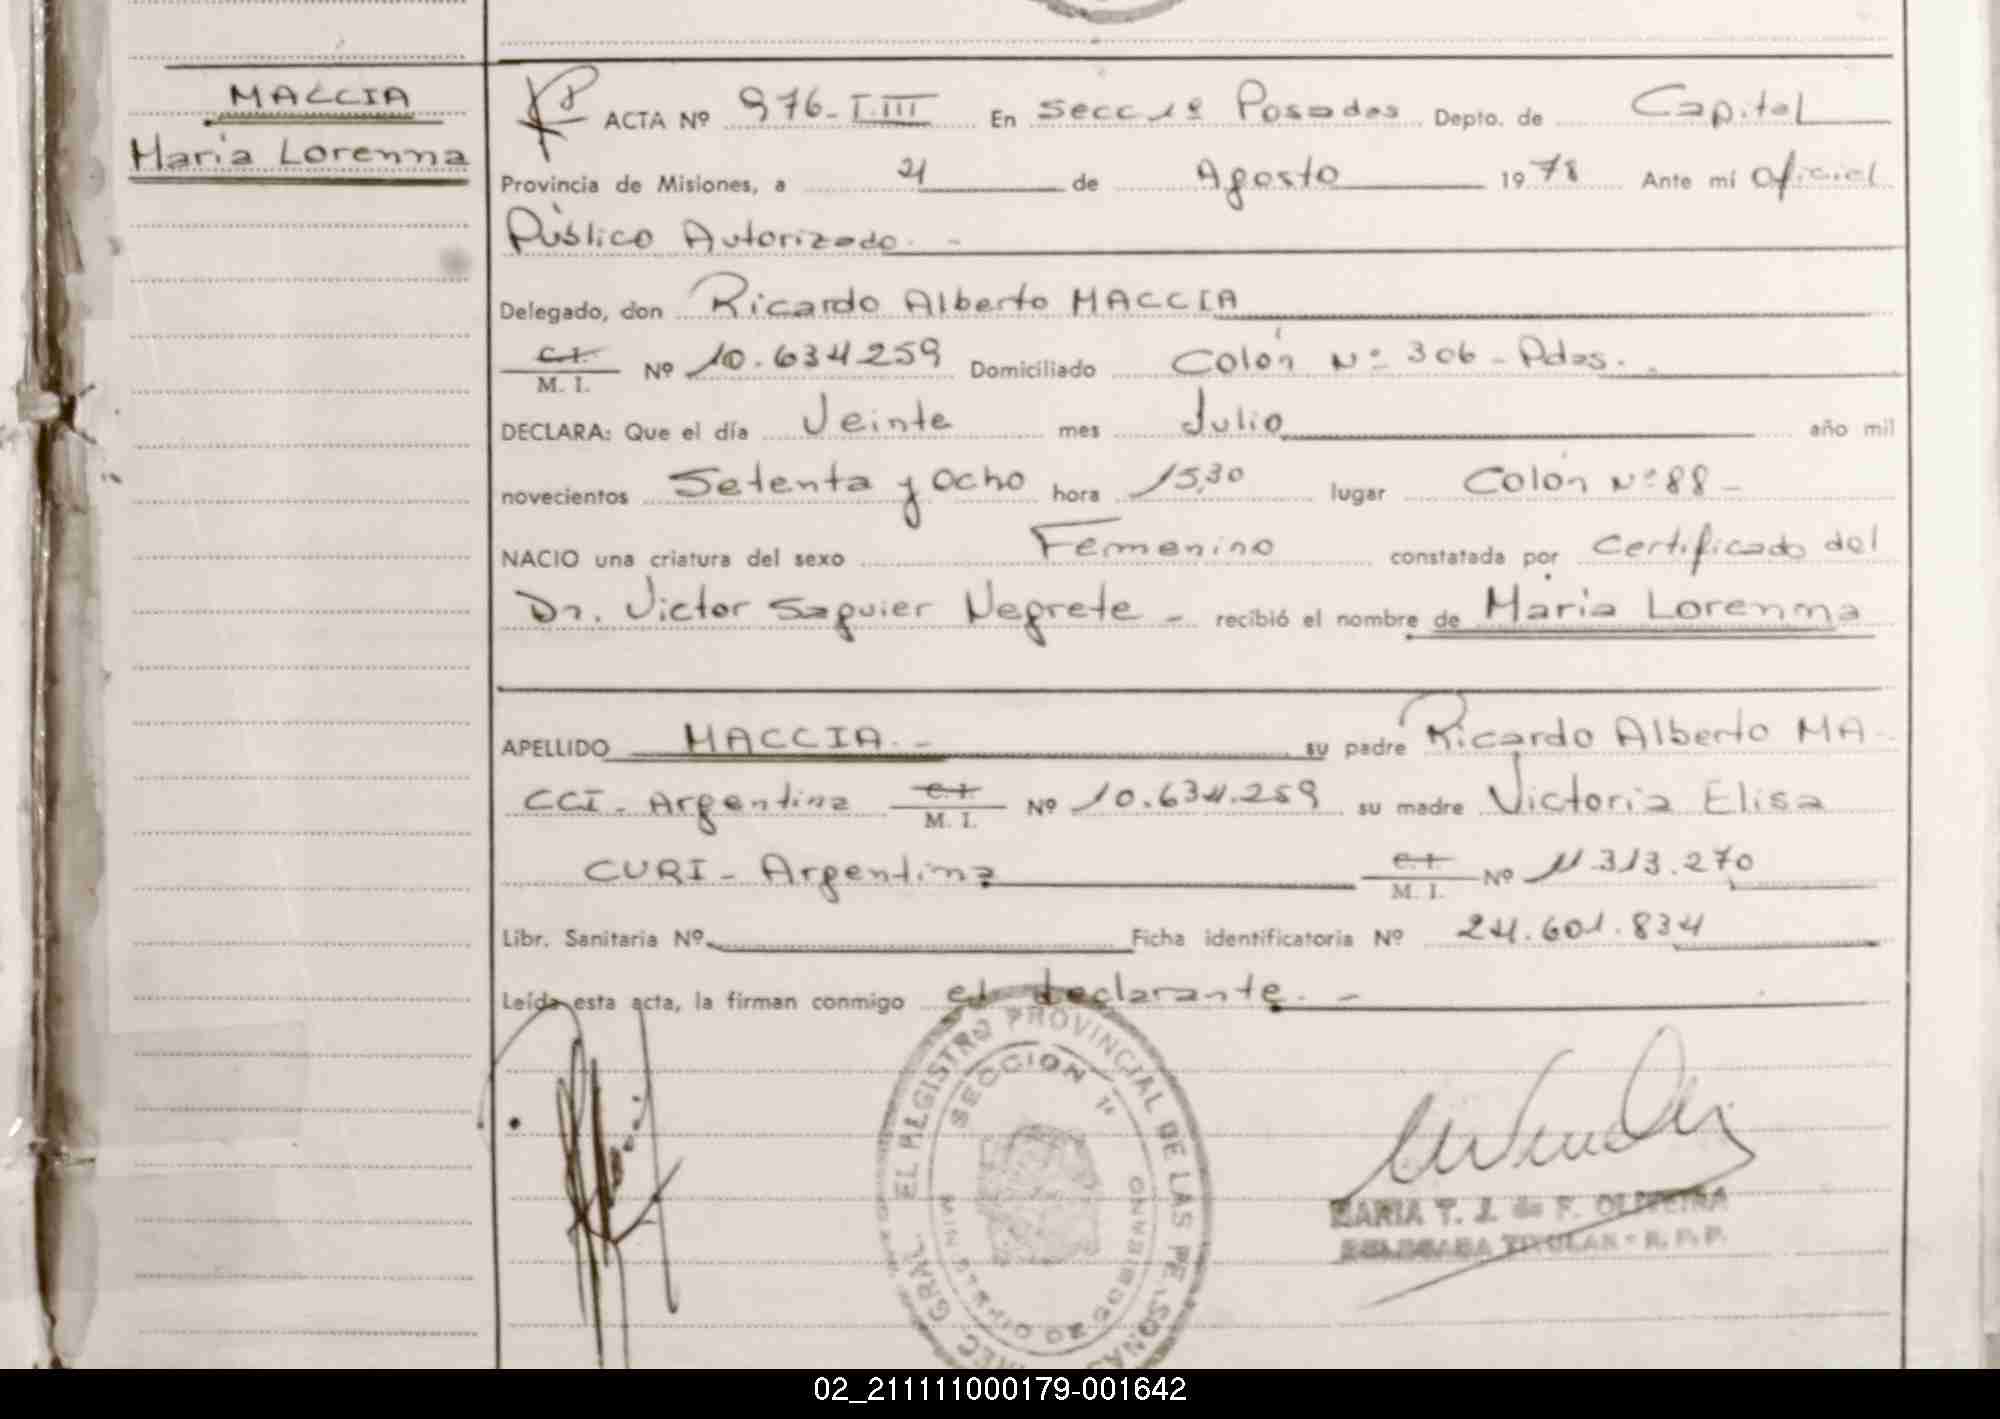 MACCIA
Maria Lorenma
ACTA Nº 976-T.III En Secc 1º Posadas Depto. de Capital
Provincia de Misiones, a 21 de Agosto 1978 Ante mí Oficial
Público Autorizado. -
Delegado, don Ricardo Alberto MACCIA
C.I. M. I. Nº 10.634259 Domiciliado Colón Nº 306 - Pdas.
DECLARA: Que el día Veinte mes Julio año mil
novecientos Setenta y Ocho hora 15,30 lugar Colón Nº 88 -
NACIO una criatura del sexo Femenino constatada por Certificado del
Dr. Victor Saguier Negrete - recibió el nombre de Maria Lorenma
APELLIDO MACCIA. - su padre Ricardo Alberto MA-
CCI - Argentina C.I. M. I. Nº 10.634.259 su madre Victoria Elisa
CURI - Argentina C.I. M. I. Nº 11.313.270
Libr. Sanitaria Nº Ficha identificatoria Nº 24.601.834
Leída esta acta, la firman conmigo el declarante. -
GRAL. EL REGISTRO PROVINCIAL DE LAS PERSONAS
SECCION 1ª
MARIA T. J. de F. OLIVEIRA
DELEGADA TITULAR - R. P. P.
02_211111000179-001642